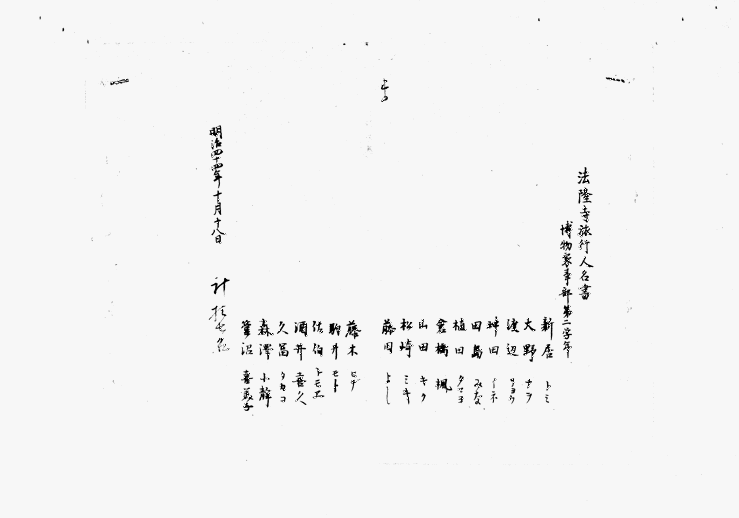 法隆寺旅行人名書
博物家事部第二学年
新居 トミ
大野 ナヲ
渡辺 リヨウ
津田 イネ
田島 みな
植田 タマヨ
倉橋 楓
山田 キク
松崎 ミキ
藤田 よし
藤木 ヒデ
駒井 モト
佐伯 トモエ
酒井 喜久
久冨 タキコ
森澤 小静
菅沼 喜美子
明治四十四年十月十八日
計 拾七名